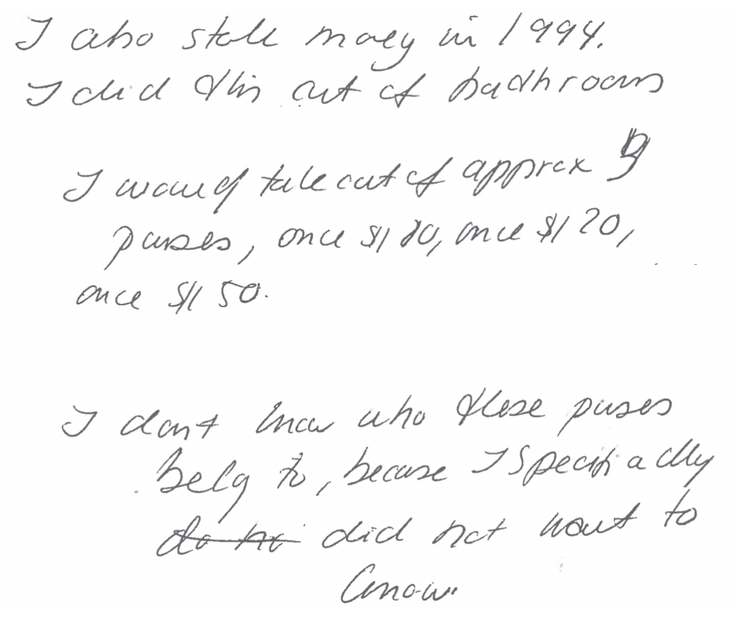 I also stole money in 1994.
I did this out of bathrooms
I would take out of approx
purses, once $120, once $120,
once $150.
I dont know who these purses
belg to, because I specifically
do no did not want to
know.